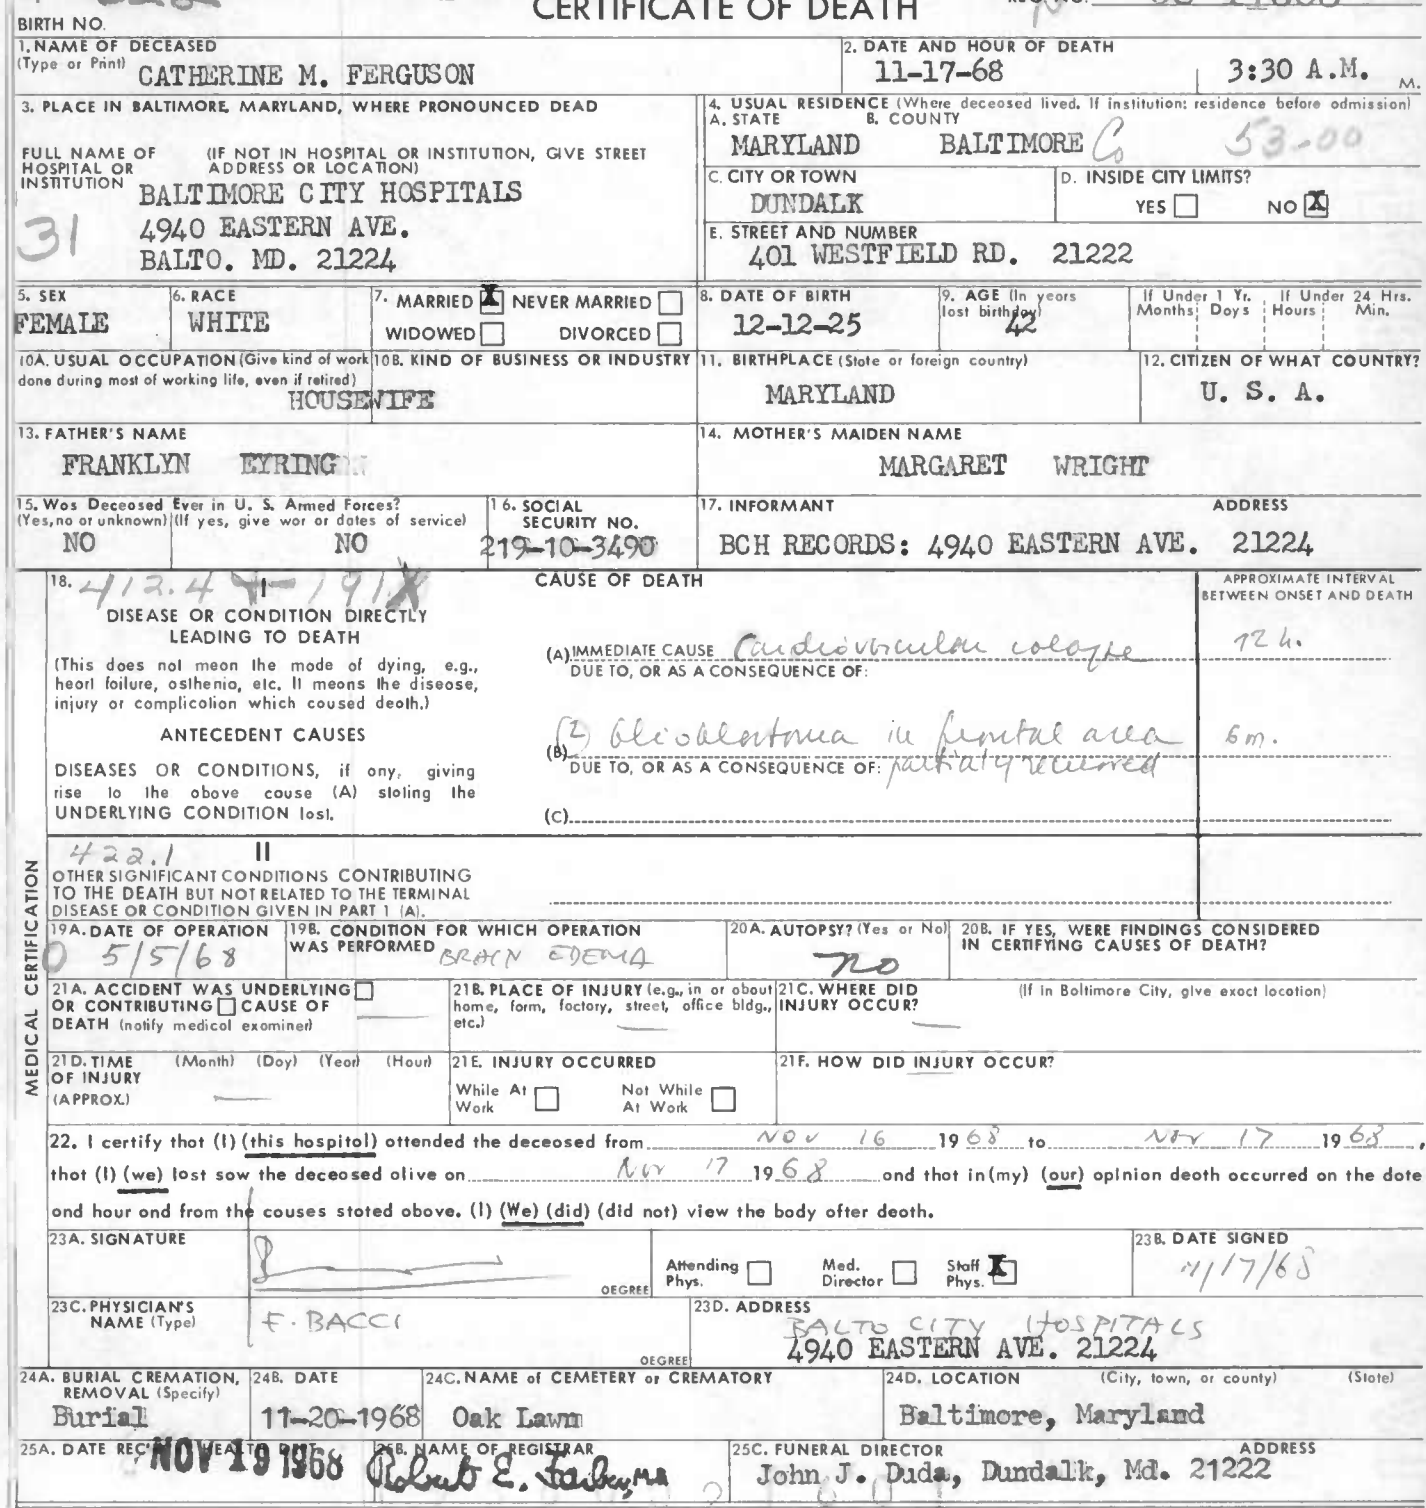 CERTIFICATE OF DEATH
BIRTH NO.
1. NAME OF DECEASED
(Type or Print) CATHERINE M. FERGUSON
2. DATE AND HOUR OF DEATH
11-17-68 3:30 A.M. M.
3. PLACE IN BALTIMORE, MARYLAND, WHERE PRONOUNCED DEAD
FULL NAME OF HOSPITAL OR INSTITUTION
(IF NOT IN HOSPITAL OR INSTITUTION, GIVE STREET ADDRESS OR LOCATION)
BALTIMORE CITY HOSPITALS
4940 EASTERN AVE.
BALTO. MD. 21224
31
4. USUAL RESIDENCE (Where deceased lived. If institution: residence before admission)
A. STATE B. COUNTY
MARYLAND BALTIMORE Co 53-00
C. CITY OR TOWN
DUNDALK
D. INSIDE CITY LIMITS?
YES NO X
E. STREET AND NUMBER
401 WESTFIELD RD. 21222
5. SEX
FEMALE
6. RACE
WHITE
7. MARRIED X NEVER MARRIED
WIDOWED DIVORCED
8. DATE OF BIRTH
12-12-25
9. AGE (In years last birthday)
42
If Under 1 Yr. If Under 24 Hrs.
Months Days Hours Min.
10A. USUAL OCCUPATION (Give kind of work done during most of working life, even if retired)
HOUSEWIFE
10B. KIND OF BUSINESS OR INDUSTRY
11. BIRTHPLACE (State or foreign country)
MARYLAND
12. CITIZEN OF WHAT COUNTRY?
U. S. A.
13. FATHER'S NAME
FRANKLYN EYRING
14. MOTHER'S MAIDEN NAME
MARGARET WRIGHT
15. Was Deceased Ever in U. S. Armed Forces?
(Yes, no or unknown) (If yes, give war or dates of service)
NO NO
16. SOCIAL SECURITY NO.
219-10-3490
17. INFORMANT ADDRESS
BCH RECORDS: 4940 EASTERN AVE. 21224
18. 412.4
I
CAUSE OF DEATH
APPROXIMATE INTERVAL
BETWEEN ONSET AND DEATH
DISEASE OR CONDITION DIRECTLY
LEADING TO DEATH
(This does not mean the mode of dying, e.g.,
heart failure, asthenia, etc. It means the disease,
injury or complication which caused death.)
(A) IMMEDIATE CAUSE Cardiovascular colapse 12 h.
DUE TO, OR AS A CONSEQUENCE OF:
ANTECEDENT CAUSES
DISEASES OR CONDITIONS, if any, giving
rise to the above cause (A) stating the
UNDERLYING CONDITION last.
(B) (2) Glioblastoma in frontal area 6 m.
DUE TO, OR AS A CONSEQUENCE OF: partialy removed
(C)
MEDICAL CERTIFICATION
422.1 II
OTHER SIGNIFICANT CONDITIONS CONTRIBUTING
TO THE DEATH BUT NOT RELATED TO THE TERMINAL
DISEASE OR CONDITION GIVEN IN PART 1 (A).
19A. DATE OF OPERATION
5/5/68
19B. CONDITION FOR WHICH OPERATION
WAS PERFORMED BRAIN EDEMA
20A. AUTOPSY? (Yes or No)
no
20B. IF YES, WERE FINDINGS CONSIDERED
IN CERTIFYING CAUSES OF DEATH?
21A. ACCIDENT WAS UNDERLYING
OR CONTRIBUTING CAUSE OF
DEATH (notify medical examiner)
21B. PLACE OF INJURY (e.g., in or about
home, farm, factory, street, office bldg.,
etc.)
21C. WHERE DID
INJURY OCCUR?
(If in Baltimore City, give exact location)
21D. TIME (Month) (Day) (Year) (Hour)
OF INJURY
(APPROX.)
21E. INJURY OCCURRED
While At Work Not While At Work
21F. HOW DID INJURY OCCUR?
22. I certify that (I) (this hospital) attended the deceased from Nov 16 1968 to Nov 17 1968,
that (I) (we) last saw the deceased alive on Nov 17 1968 and that in (my) (our) opinion death occurred on the date
and hour and from the causes stated above. (I) (We) (did) (did not) view the body after death.
23A. SIGNATURE
DEGREE
Attending Phys. Med. Director Staff Phys. X
23B. DATE SIGNED
11/17/68
23C. PHYSICIAN'S
NAME (Type) F. BACCI
DEGREE
23D. ADDRESS
BALTO CITY HOSPITALS
4940 EASTERN AVE. 21224
24A. BURIAL CREMATION,
REMOVAL (Specify)
Burial
24B. DATE
11-20-1968
24C. NAME of CEMETERY or CREMATORY
Oak Lawn
24D. LOCATION (City, town, or county) (State)
Baltimore, Maryland
25A. DATE REC'
NOV 19 1968
25B. NAME OF REGISTRAR
Robert E. Farber, MD
25C. FUNERAL DIRECTOR ADDRESS
John J. Duda, Dundalk, Md. 21222